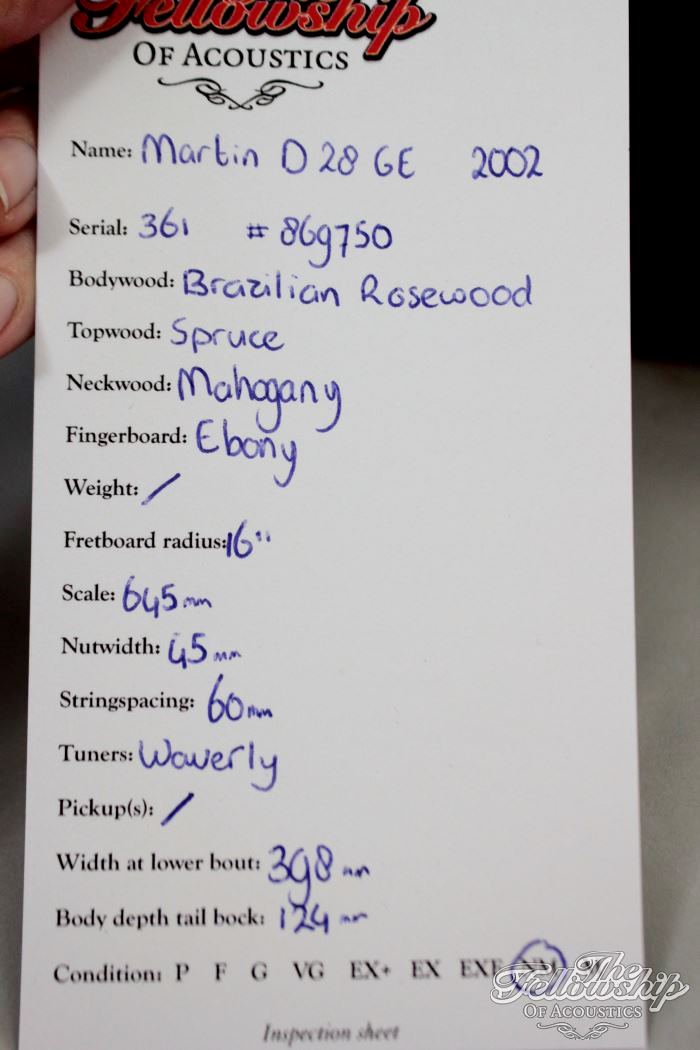 Fellowship
OF ACOUSTICS
Name: Martin D 28 GE 2002
Serial: 361 # 869750
Bodywood: Brazilian Rosewood
Topwood: Spruce
Neckwood: Mahogany
Fingerboard: Ebony
Weight: /
Fretboard radius: 16"
Scale: 645mm
Nutwidth: 45mm
Stringspacing: 60mm
Tuners: Waverly
Pickup(s): /
Width at lower bout: 398 mm
Body depth tail bock: 124 mm
Condition: P F G VG EX+ EX EXF NM
Inspection sheet
The
Fellowship
OF ACOUSTICS